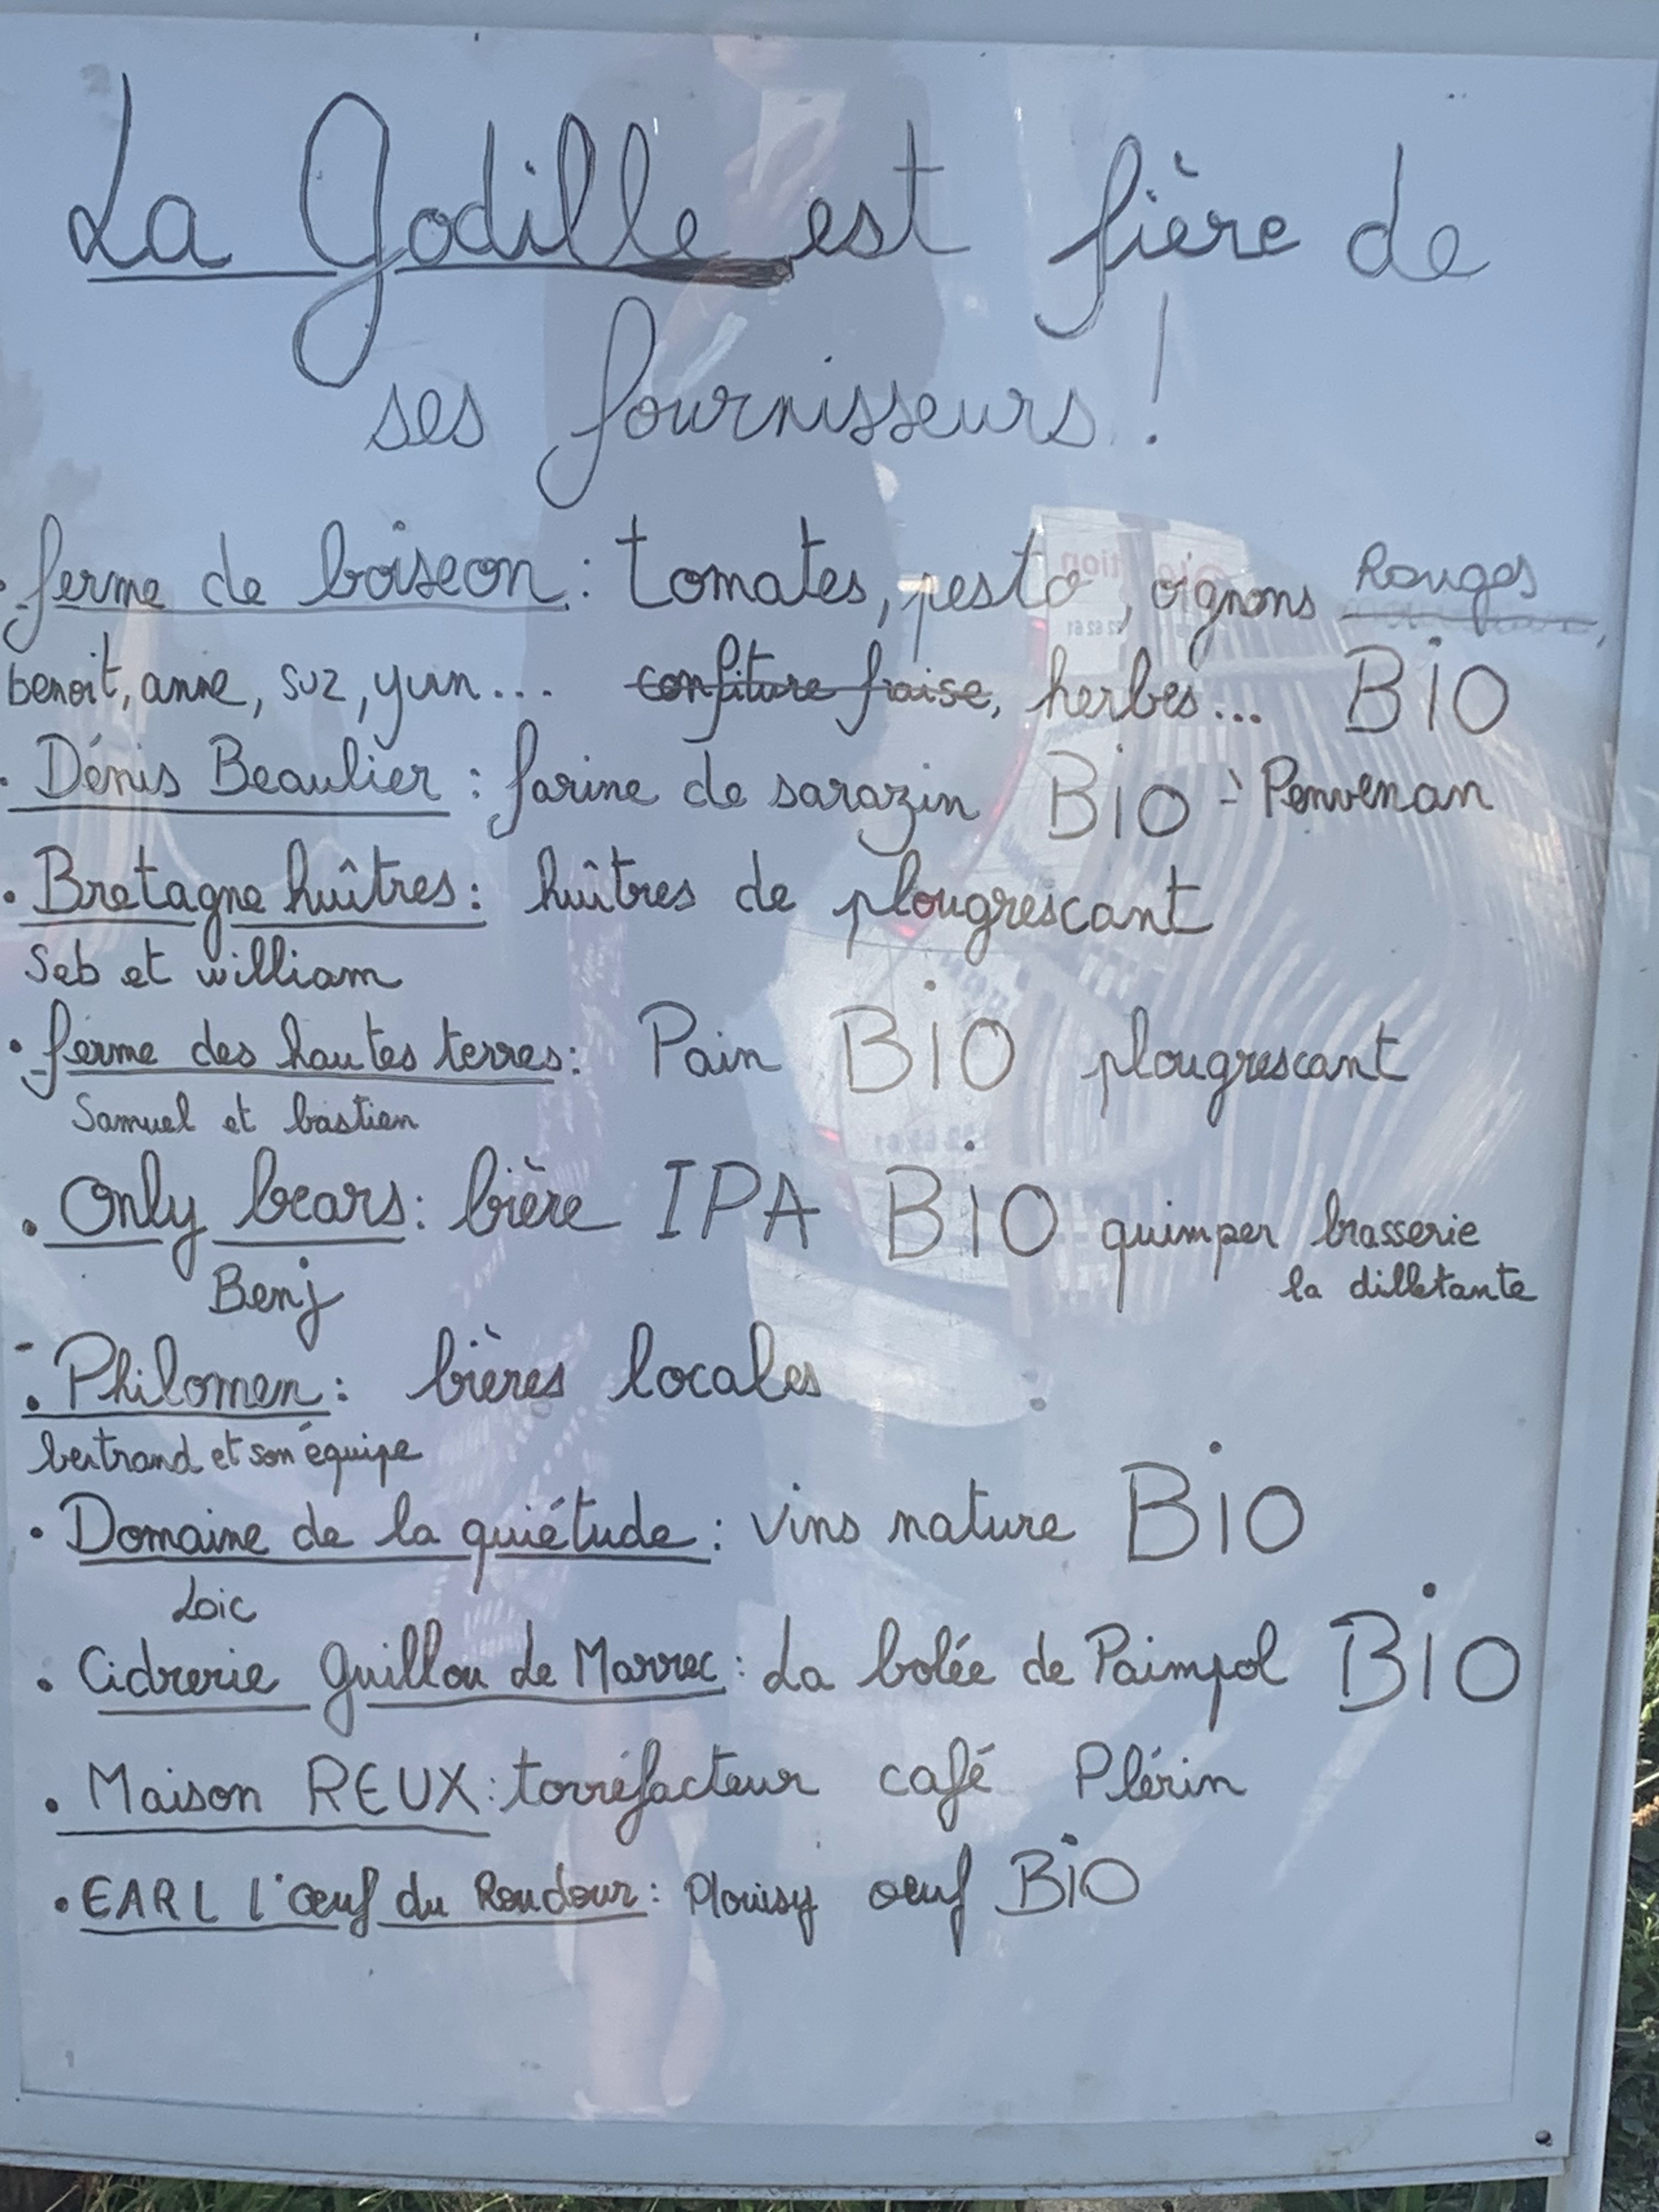 La Godille est fière de
ses fournisseurs !
· ferme de boiseon : tomates, pesto, oignons Rouges
benoit, anne, suz, yun... confiture fraise, herbes... BiO
· Dénis Beaulier : farine de sarazin BiO - Penvenan
· Bretagne huîtres : huîtres de plougrescant
Seb et william
· ferme des hautes terres : Pain BiO plougrescant
Samuel et bastien
· Only bears : bière IPA BiO quimper brasserie
la dilletante
Benj
· Philomen : bières locales
bertrand et son équipe
· Domaine de la quiétude : vins nature BiO
Loic
· Cidrerie Guillou de Marrec : La bolée de Paimpol BiO
· Maison REUX : torréfacteur café Plérin
· EARL l'œuf du Roudour : Plouisy œuf BiO